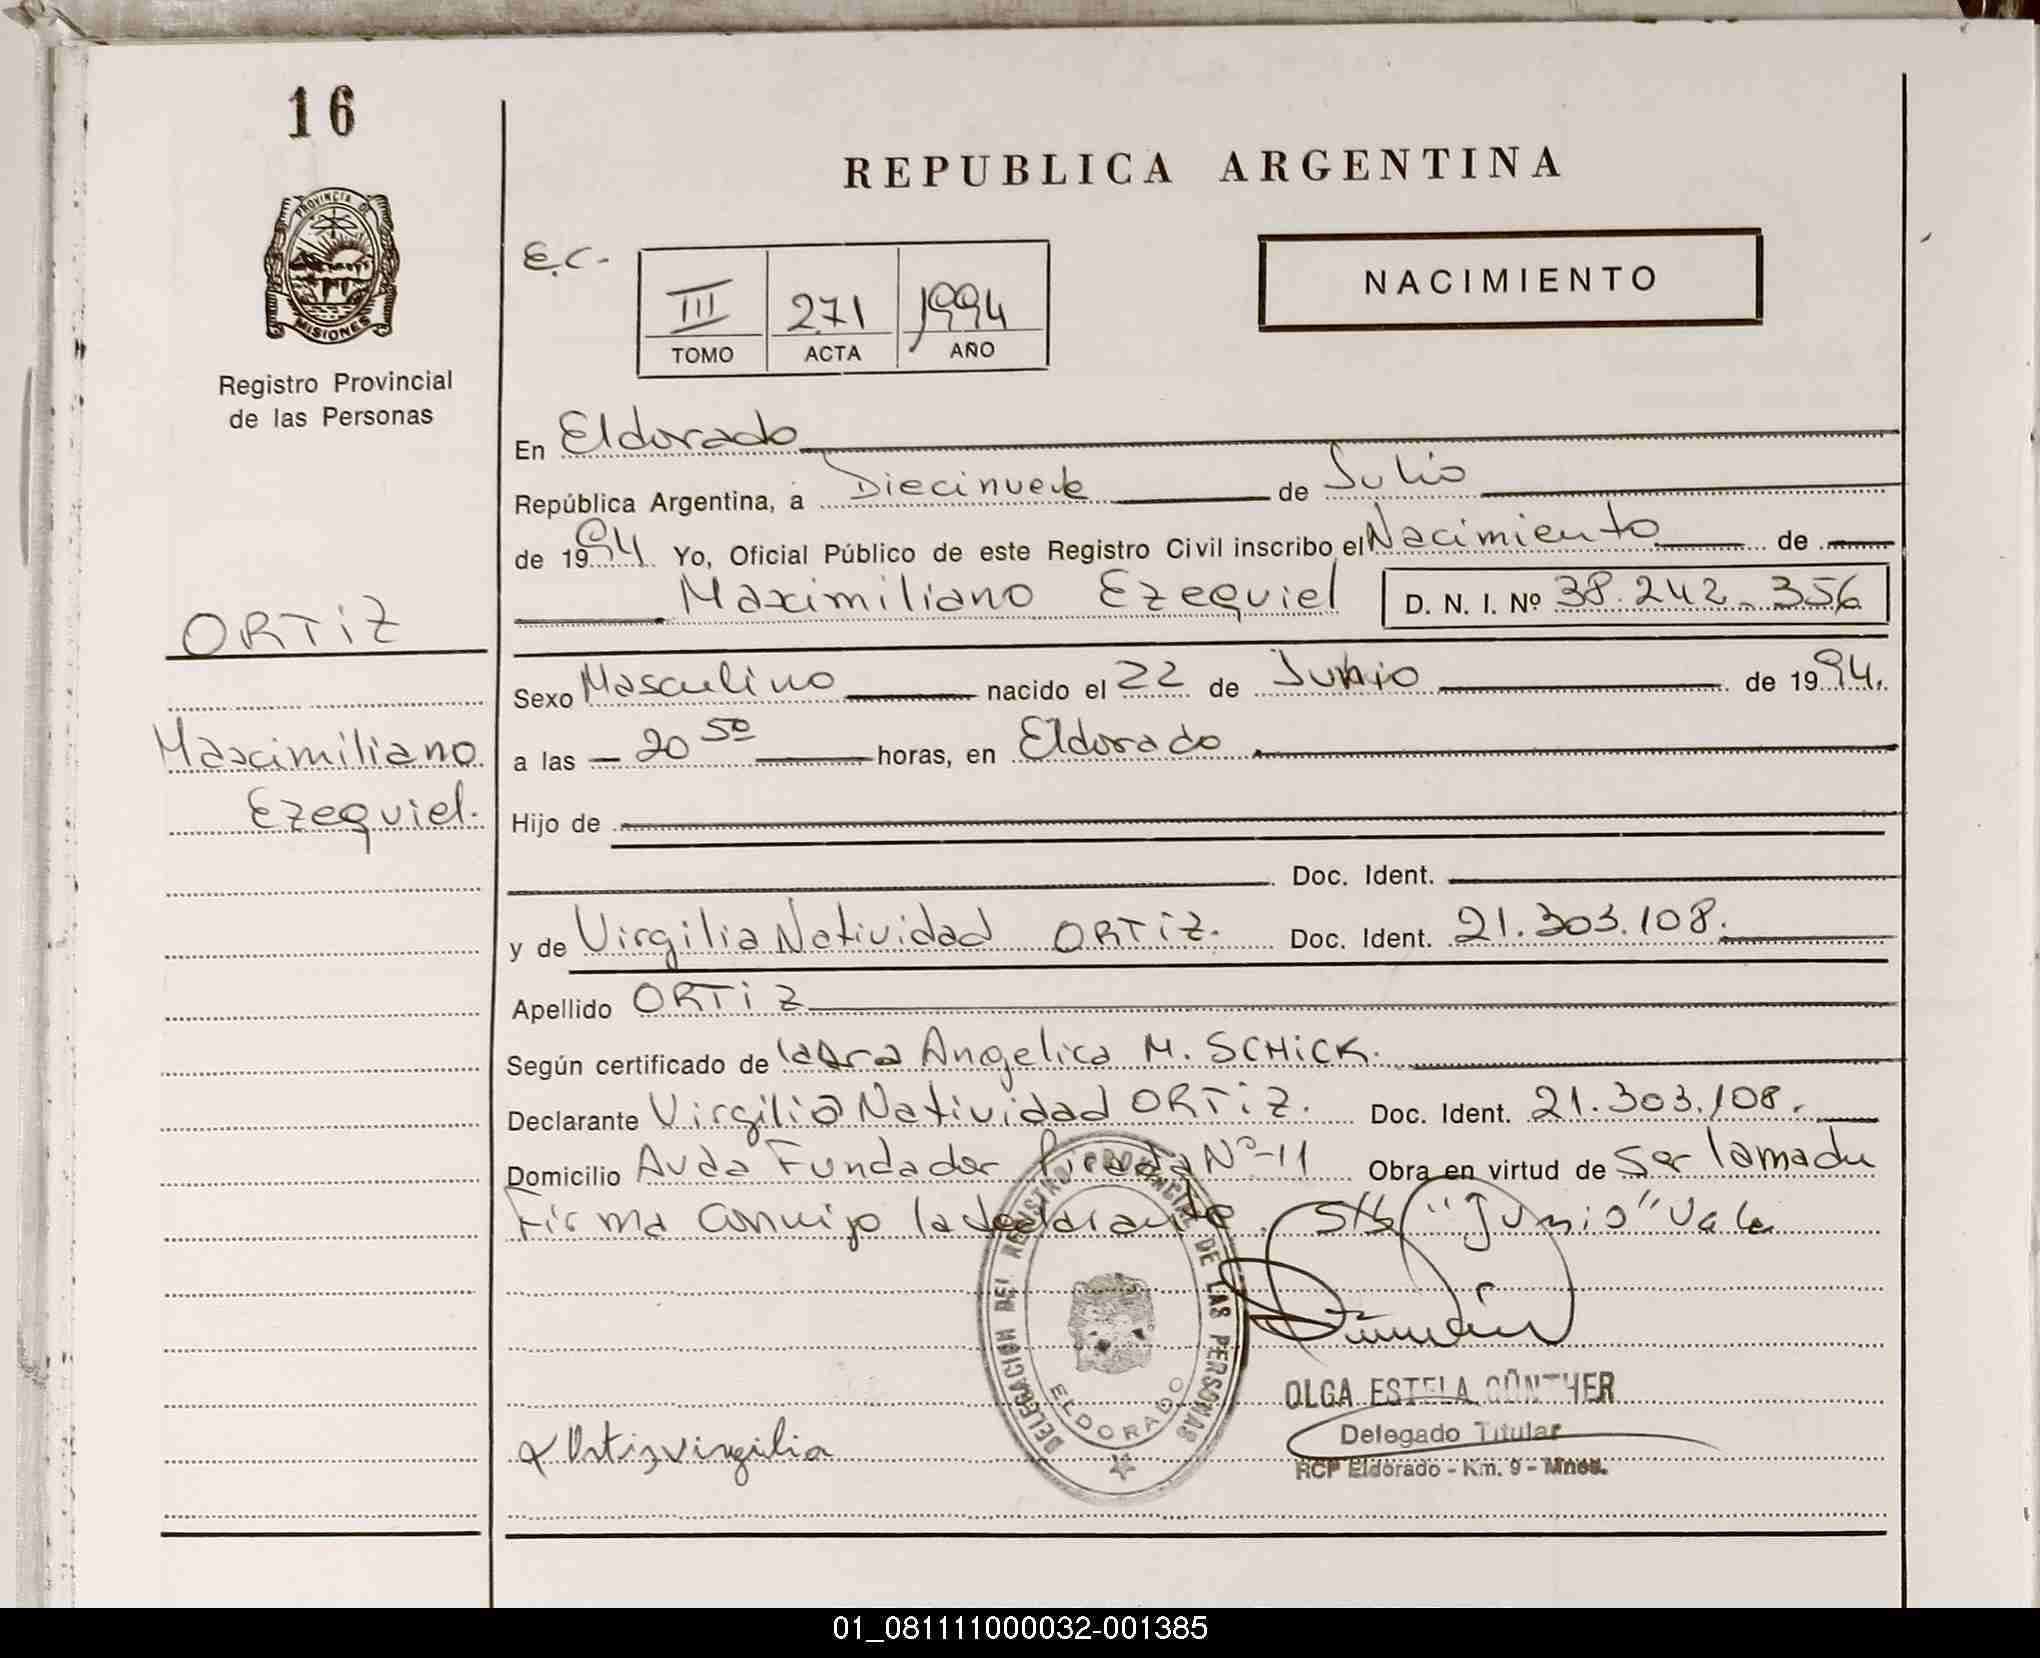 16
REPUBLICA ARGENTINA
PROVINCIA DE
MISIONES
Registro Provincial
de las Personas
E.C.-
III 271 1994
TOMO ACTA AÑO
NACIMIENTO
En Eldorado
República Argentina, a Diecinueve de Julio
de 1994 Yo, Oficial Público de este Registro Civil inscribo el Nacimiento de
Maximiliano Ezequiel D. N. I. Nº 38.242.356
ORTiZ
Sexo Masculino nacido el 22 de Junio de 1994.
Maximiliano
Ezequiel.
a las 20 50 horas, en Eldorado
Hijo de
Doc. Ident.
y de Virgilia Natividad ORTiZ. Doc. Ident. 21.303.108.
Apellido ORTiZ
Según certificado de la Dra Angelica M. SCHiCK.
Declarante Virgilia Natividad ORTiZ. Doc. Ident. 21.303.108.
Domicilio Avda Fundador Picada Nº-11 Obra en virtud de Ser la madre
Firma conmigo la declarante. S/b "Junio" Vale
DELEGACION DEL REGISTRO PROVINCIAL DE LAS PERSONAS
ELDORADO
OLGA ESTELA GÜNTHER
Delegado Titular
RCP Eldorado - Km. 9 - Mnes.
Ortiz virgilia
01_081111000032-001385